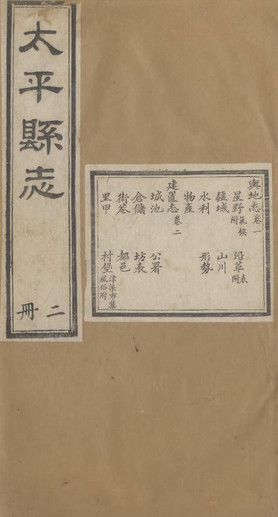 太平縣志
二冊
輿地志卷一
星野氣候附 沿革表附
疆域 山川
水利 形勢
物產
建置志卷二
城池 公署
倉儲 坊表
街巷 都邑
里甲 村堡津梁市集風俗附